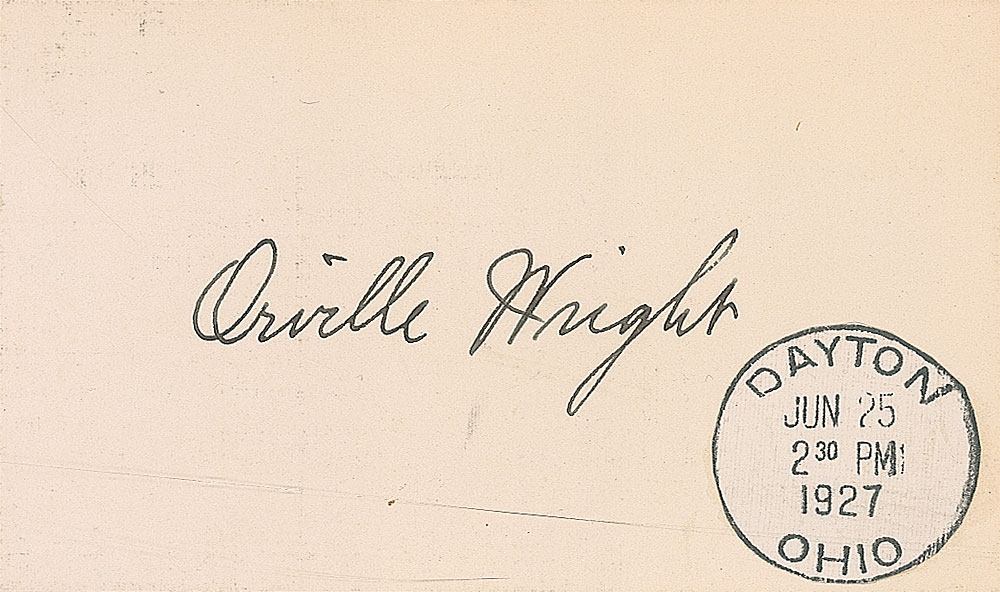 Orville Wright
DAYTON
JUN 25
2 30 PM
1927
OHIO